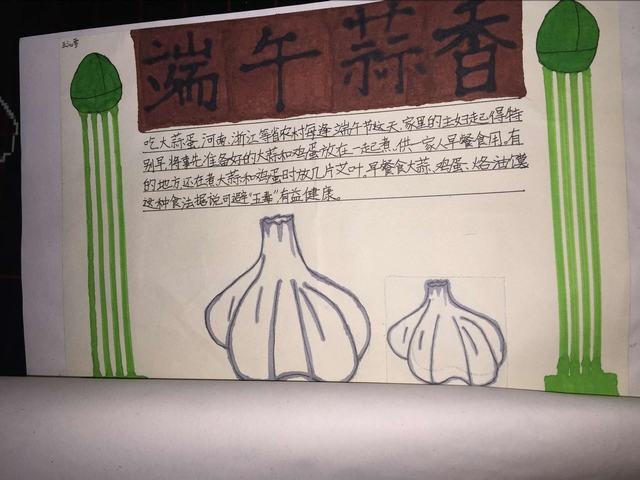 端午蒜香
吃大蒜蛋,河南、浙江等省农村每逢端午节这天,家里的主妇起得特
别早,将事先准备好的大蒜和鸡蛋放在一起煮,供一家人早餐食用,有
的地方还在煮大蒜和鸡蛋时放几片艾叶。早餐食大蒜、鸡蛋、烙油馍
这种食法据说可避"五毒"有益健康。